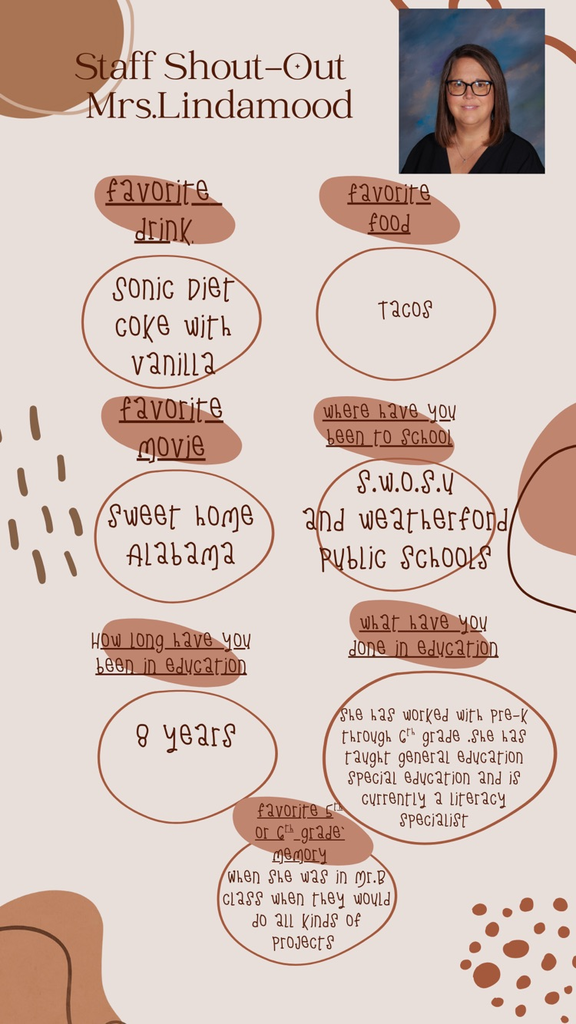 Staff Shout-Out
Mrs.Lindamood
favorite
drink
favorite
food
Sonic Diet
coke with
vanilla
Tacos
favorite
movie
where have you
been to School
Sweet home
Alabama
S.W.O.S.U
and weatherford
Public Schools
How long have you
been in education
what have you
done in education
8 years
She has worked with Pre-K
through 6th grade .She has
taught general education
Special education and is
currently a literacy
Specialist
favorite 5th
or 6th grade
memory
when She was in Mr.B
class when they would
do all kinds of
Projects